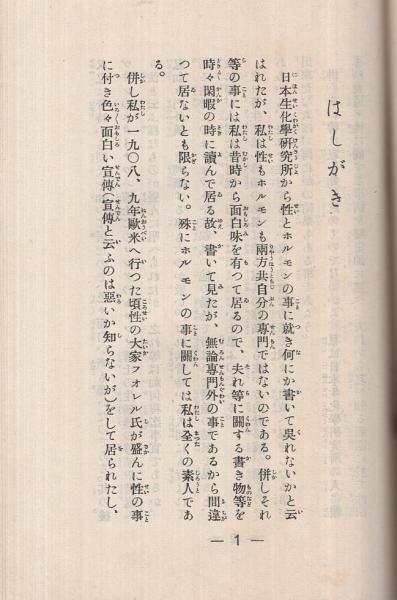 はしがき
日本生化學研究所から性とホルモンの事に就き何にか書いて吳れないかと云
はれたが、私は性もホルモンも兩方共自分の專門ではないのである。併しそれ
等の事には私は昔時から面白味を有つて居るので、夫れ等に關する書き物等を
時々閑暇の時に讀んで居る故、書いて見たが、無論專門外の事であるから間違
つて居ないとも限らない。殊にホルモンの事に關しては私は全くの素人であ
る。
併し私が一九〇八、九年歐米へ行つた頃性の大家フオレル氏が盛んに性の事
に付き色々面白い宣傳(宣傳と云ふのは惡いか知らないが)をして居られたし、
— 1 —